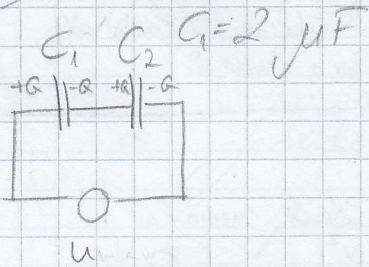 C₁ C₂ C₁=2 μF
+Q -Q +Q -Q
U